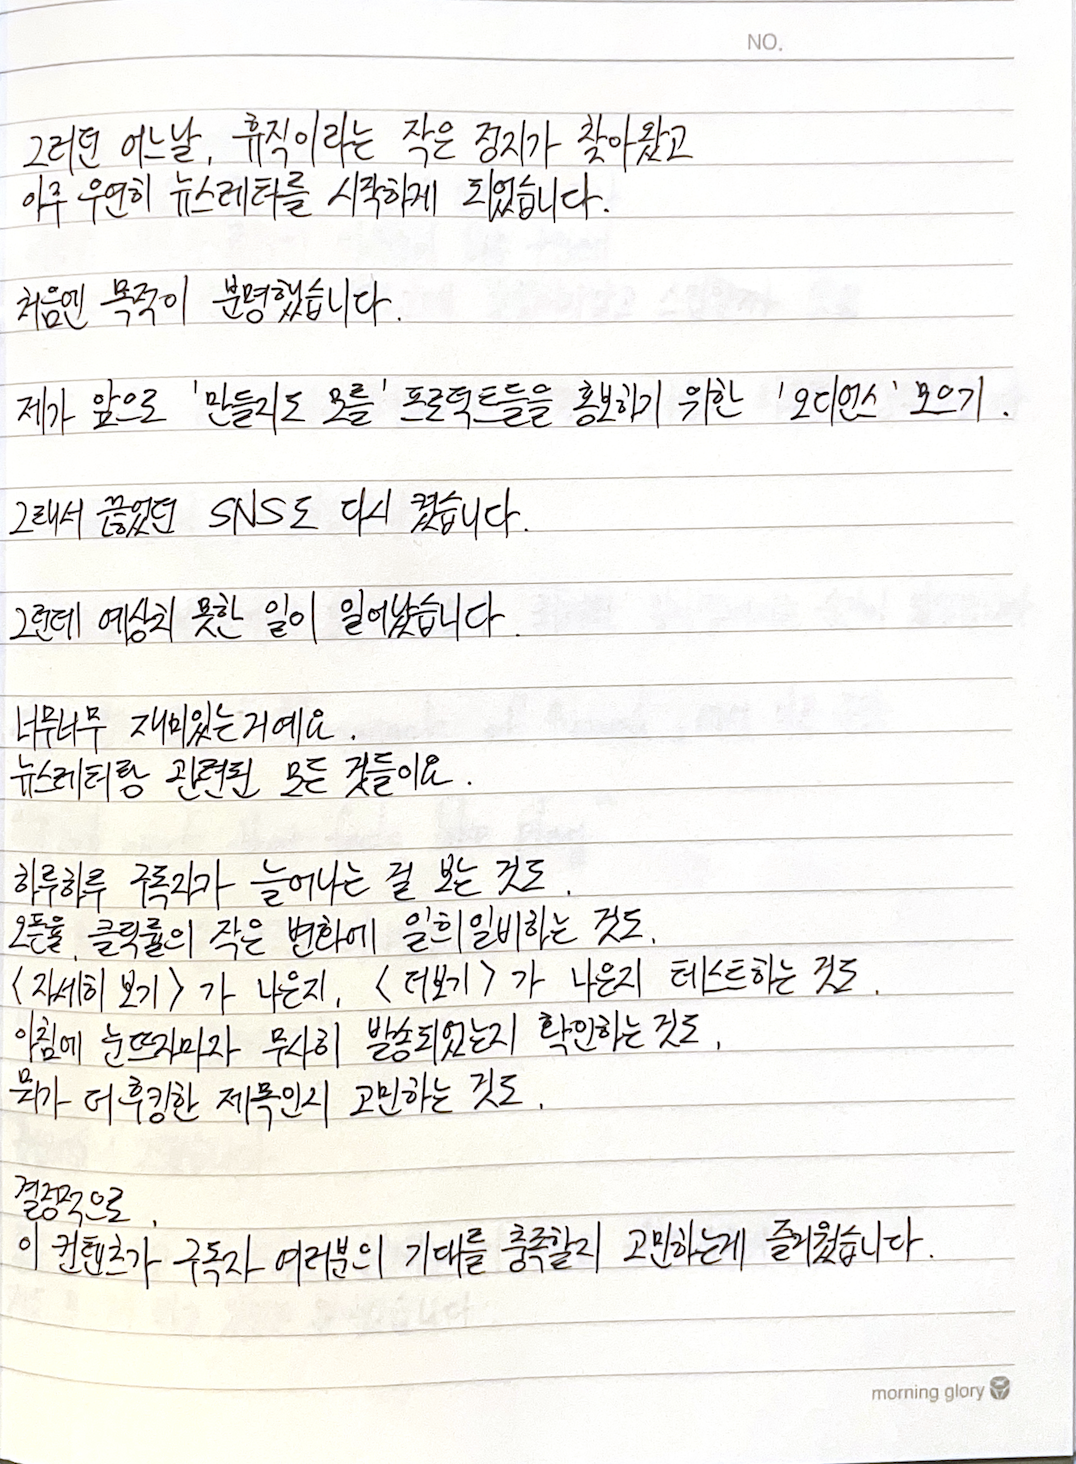 NO.
그러던 어느날, 휴직이라는 작은 정지가 찾아왔고
아주 우연히 뉴스레터를 시작하게 되었습니다.
처음엔 목적이 분명했습니다.
제가 앞으로 '만들지도 모를' 프로덕트들을 홍보하기 위한 '오디언스' 모으기.
그래서 끊었던 SNS도 다시 켰습니다.
그런데 예상치 못한 일이 일어났습니다.
너무너무 재미있는거예요.
뉴스레터랑 관련된 모든 것들이요.
하루하루 구독자가 늘어나는 걸 보는 것도,
오픈율, 클릭률의 작은 변화에 일희일비하는 것도,
<자세히 보기>가 나은지, <더보기>가 나은지 테스트하는 것도,
아침에 눈뜨자마자 무사히 발송되었는지 확인하는 것도,
뭐가 더 후킹한 제목인지 고민하는 것도,
결정적으로,
이 컨텐츠가 구독자 여러분의 기대를 충족할지 고민하는게 즐거웠습니다.
morning glory